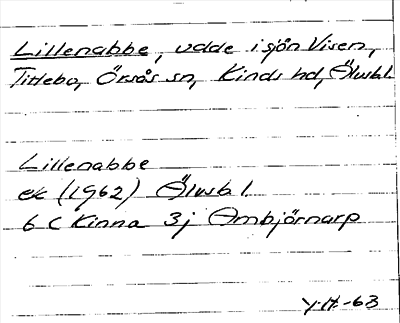 Lillenabbe, udde i sjön Visen,
Tittebo, Örsås sn, Kinds hd, Älvsb.l.
Lillenabbe
ek (1962) Älvsb.l.
6 C Kinna 3j Ambjörnarp
Y.H.-63